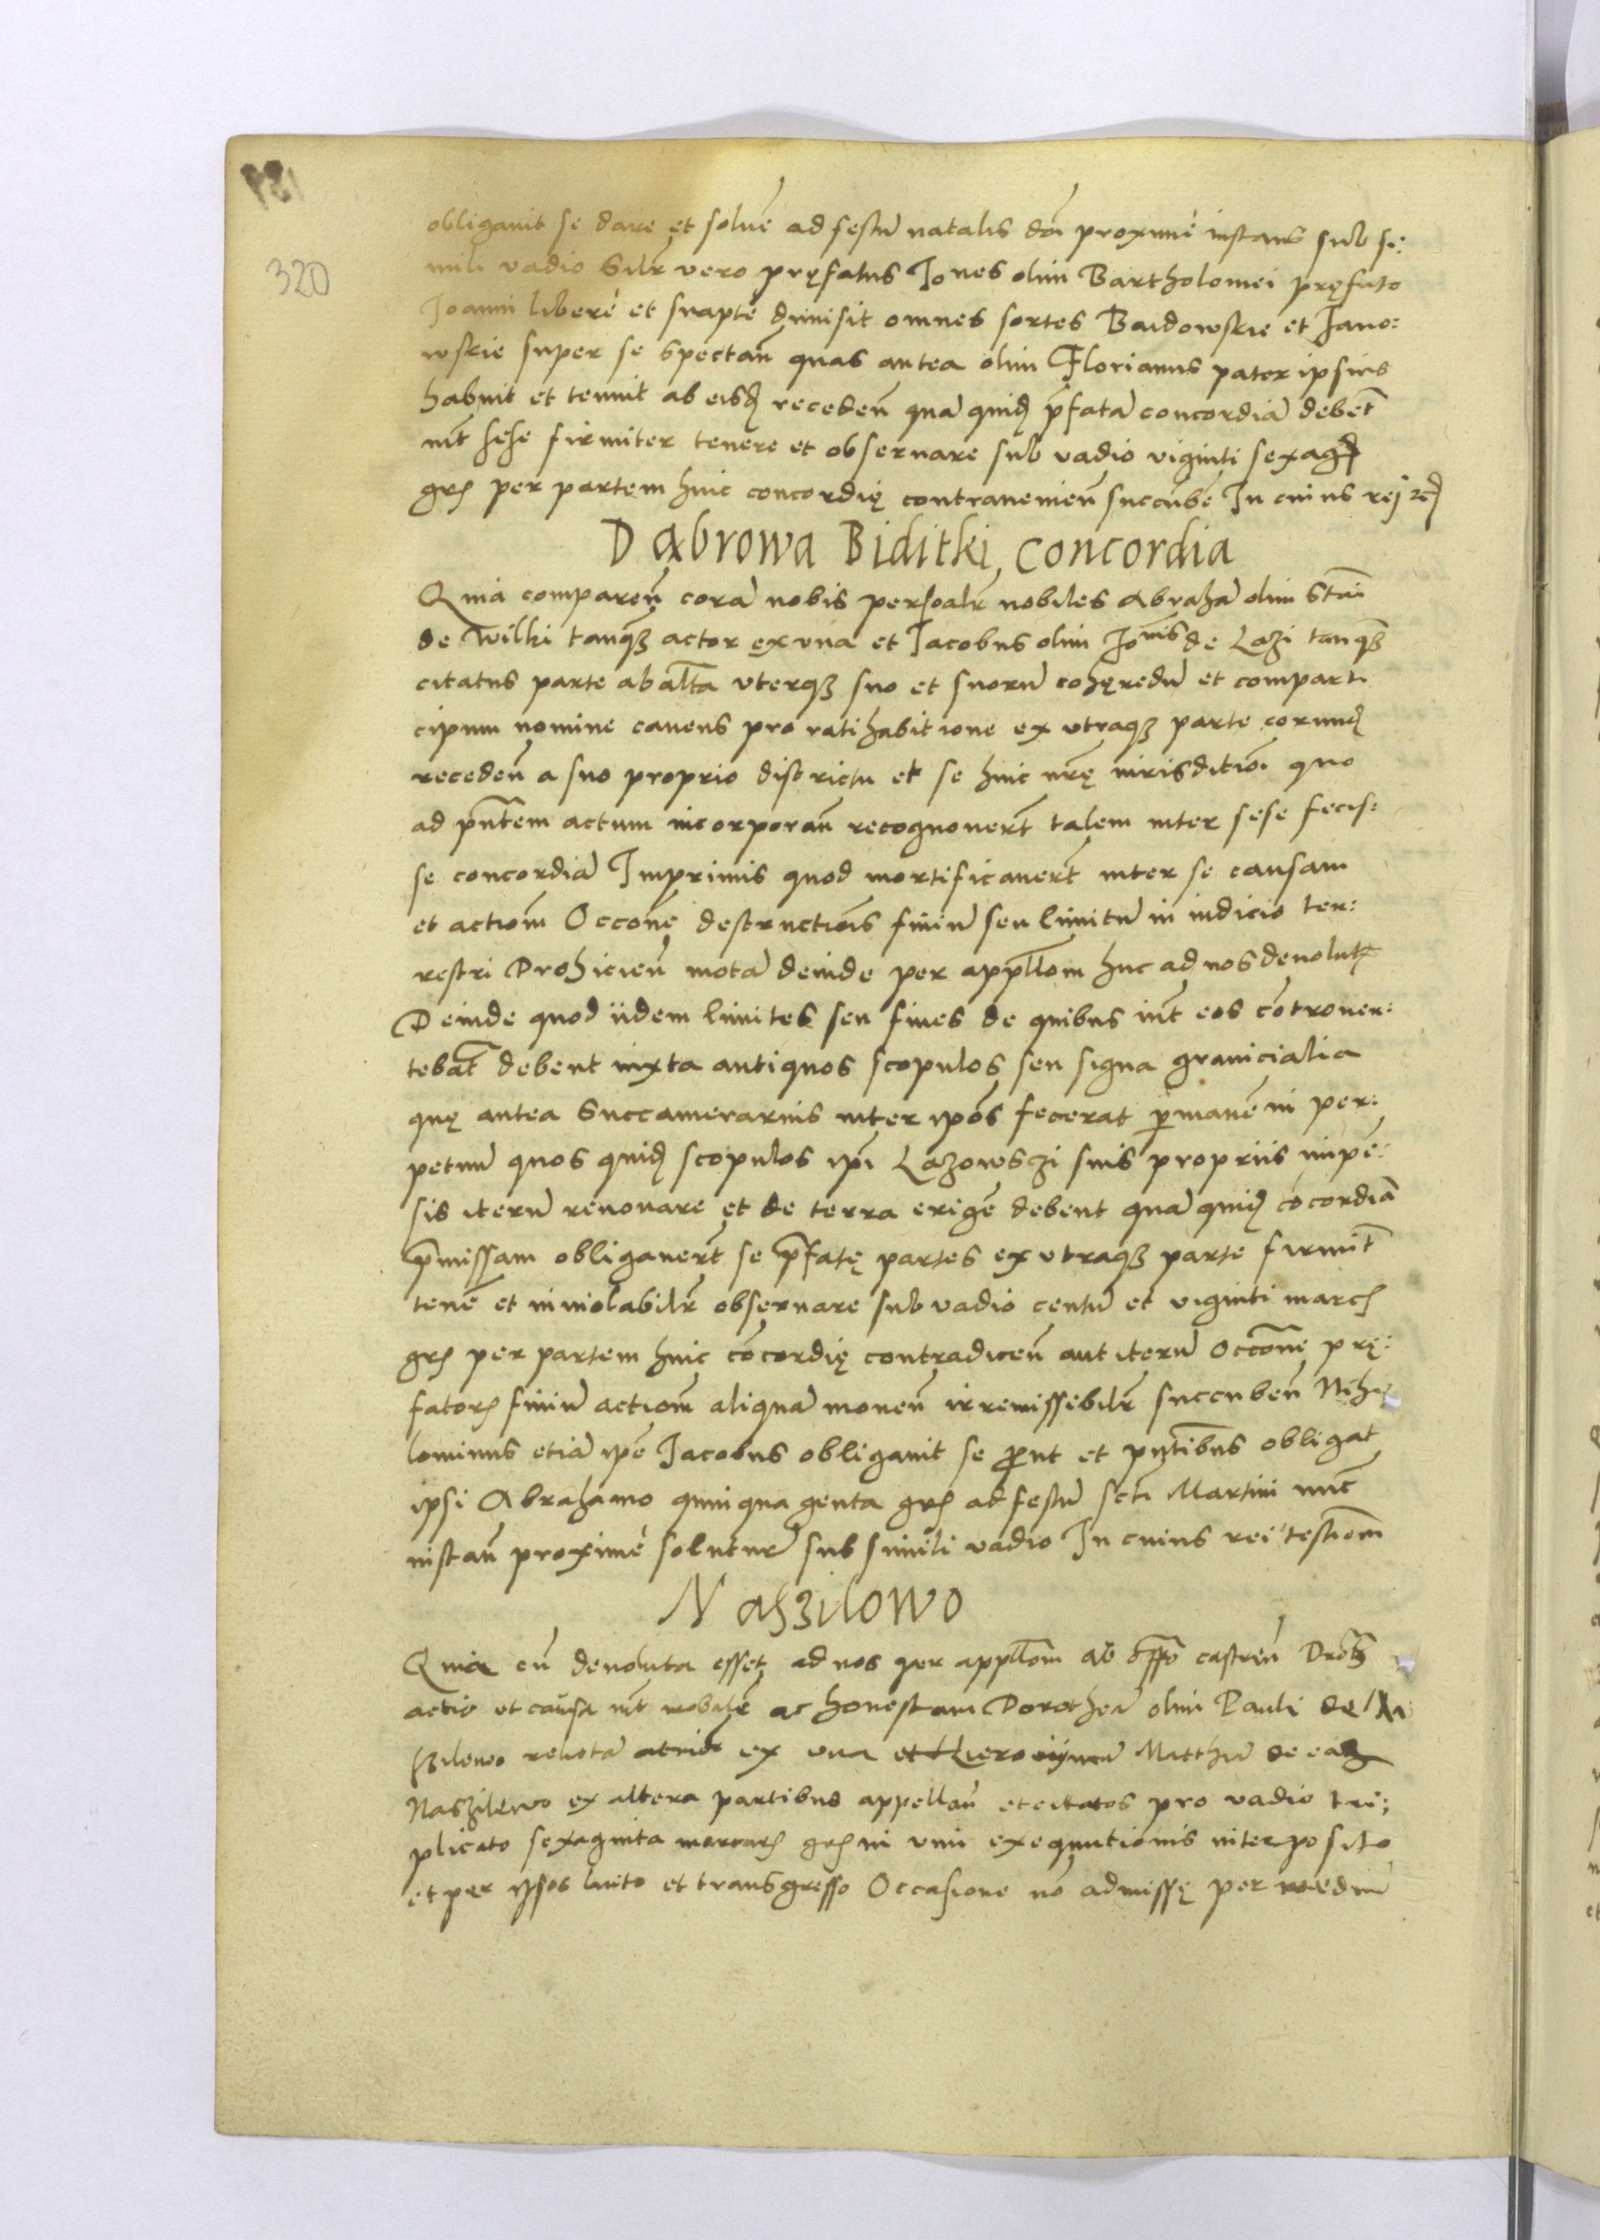 320
obligavit se dare et solvē ad festū natalis dōi proximè instans sub si:
mili vadio Silr vero pręfatus Joñes olim Bartholomei pręfato
Joanni liberè et suaptè dimisit omnes sortes Baidowskie et Jano:
wskie super se spectañ quas antea olim Florianus pater ipsius
habuit et tenuit ab eisđ recedeñ quā quiđ p̄fatā concordiā debet̄
int̄ sese firmiter tenere et observare sub vadio viginti sexag
grō per partem huic concordię contravenieñ succūbē In cuius rei
Dąbrowa Biditki Concordia
Quia compareñ corā nobis persoalr̄ nobiles Abrahā olim Stāi
de Wilki tanqȝ actor ex una et Jacobus olim Joānis de Lazi tanqȝ
citatus parte ab alt̄a uterqȝ suo et suorū cohęredū et comparti
cipum nomine cavens pro ratihabitione ex utraqȝ parte eorunđ
recedeñ a suo proprio districtu et se huic nr̄ę iurisditiōi quo
ad pn̄tem actum incorporañ recognovert̄ talem inter sese fecis:
se concordiā Imprimis quod mortificavert̄ inter se causam
et actiom̄ Occone destructiōis finiū seu limitū in iudicio ter:
restri Drohicieñ motā deinde per appllom̄ huc ad nos devolut
Deinde quod iidem limites seu fines de quibus int̄ eos cōtrover:
tebat̄ debent iuxta antiquos scopulos seu signa granicialia
quę antea Succamerarius inter ipōs fecerat p̄manē in per:
petuū quos quiđ scopulos ipī Lazowszi suis propriis impē:
sis iterū renovare et de terra erigē debent quā quiđ cōcordiā
p̄missam obligavert̄ se p̄fatę partes ex utraqȝ parte firmit̄
tenē et inviolabilr̄ observare sub vadio centū et viginti marc
grō per partem huic cōcordię contradiceñ aut iterū occōne prę:
fator finiū actiom̄ aliquā moveñ irremissibilr̄ succubeñ Nihi
lominus etiā ipē Jacobus obligavit se prout et pn̄tibus obligat
ipsi Abrahamo quinquaginta grō ad festū scti Martini nūc
instañ proximè soluturū sub simili vadio In cuius rei testiom̄
Naszilowo
Quia cū devoluta esset ad nos per appllom̄ ab offo castreñ Droh
actio et causa int̄ nobilē ac honestam Dorotheā olim Pauli de Na
szilewo relictā ex una et Hieronymū Matthiā de eađ
Naszilewo ex altera partibus appellañ et citatos pro vadio tri:
plicato sexaginta marcar grō in vim exequutionis interposito
et per ipsos luito et transgresso Occasione nō admissę per